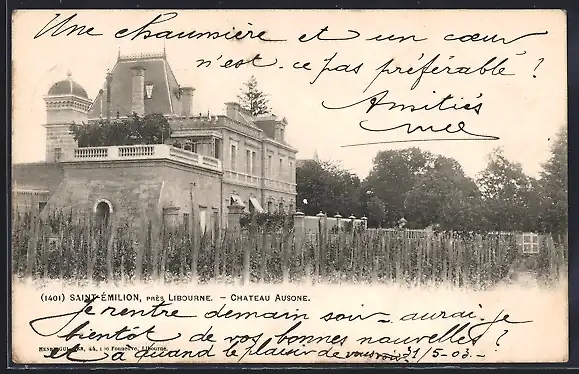 Une chaumière et un cœur
n'est-ce pas préférable ?
Amitiés
(1401) SAINT-ÉMILION, PRÈS LIBOURNE. - CHATEAU AUSONE.
Je rentre demain soir - aurai-je
bientôt de vos bonnes nouvelles ?
et à quand le plaisir de vous voir 31/5-03 -
44, rue Fonneuve, Libourne.